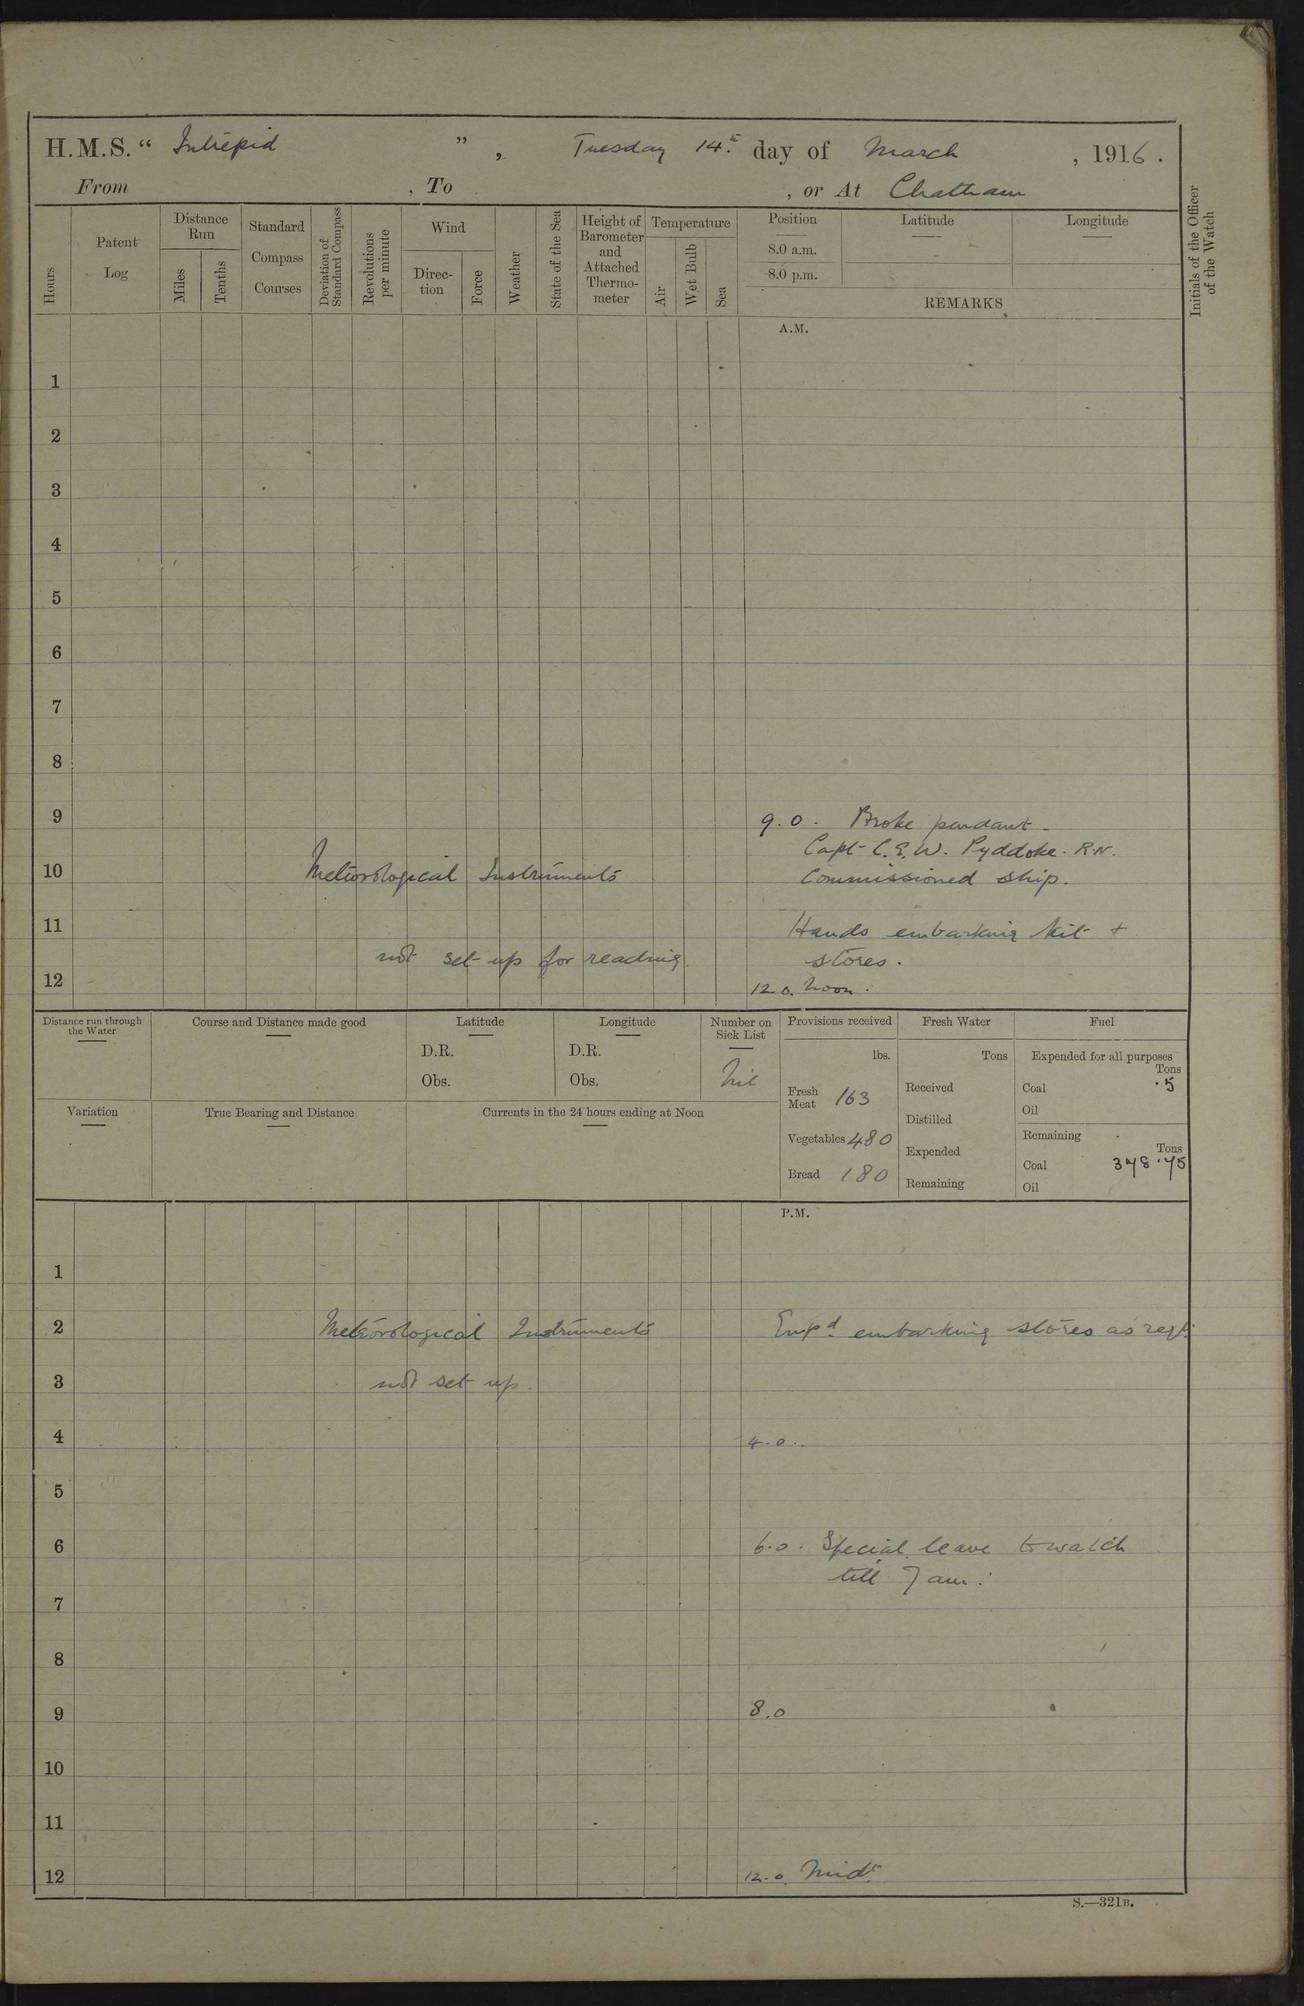 H.M.S. “ Intrepid ” , Tuesday 14th day of March , 1916 .
From , To , or At Chatham
Hours
Patent Log
Distance Run
Miles
Tenths
Standard Compass Courses
Deviation of Standard Compass
Revolutions per minute
Wind
Direction
Force
Weather
State of the Sea
Height of Barometer and Attached Thermometer
Temperature
Air
Wet Bulb
Sea
Position
8.0 a.m.
8.0 p.m.
Latitude
Longitude
REMARKS
Initials of the Officer of the Watch
A.M.
1
2
3
4
5
6
7
8
9 9.0. Broke pendant.
Capt. C.E.W. Pyddoke. R.N.
10 Meteorological Instruments Commissioned ship.
11 Hands embarking kit +
not set up for reading stores.
12 12.0. Noon.
Distance run through the Water
Course and Distance made good
Latitude
D.R.
Obs.
Longitude
D.R.
Obs.
Number on Sick List
Nil
Provisions received
lbs.
Fresh Meat 163
Vegetables 480
Bread 180
Fresh Water
Tons
Received
Distilled
Expended
Remaining
Fuel
Expended for all purposes
Tons
Coal .5
Oil
Remaining
Tons
Coal 378.75
Oil
Variation
True Bearing and Distance
Currents in the 24 hours ending at Noon
P.M.
1
2 Meteorological Instruments Empd. embarking stores as reqd.
3 not set up.
4 4.0.
5
6 6.0. Special leave to watch
till 7 am.
7
8
9 8.0
10
11
12 12.0. Midt.
S.—321B.